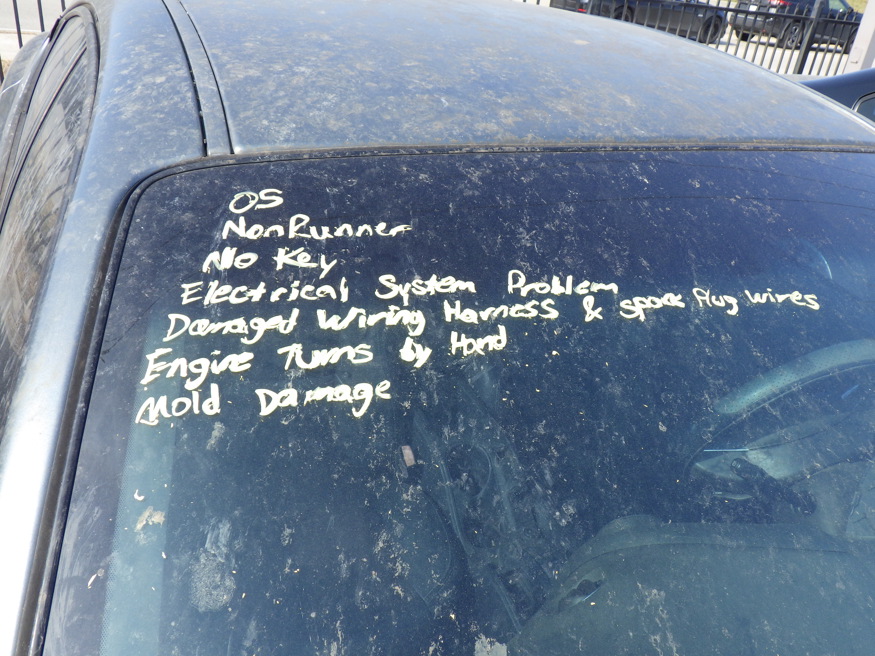 OS
NonRunner
No Key
Electrical System Problem
Damaged Wiring Harness & spark Plug wires
Engine Turns by Hand
Mold Damage